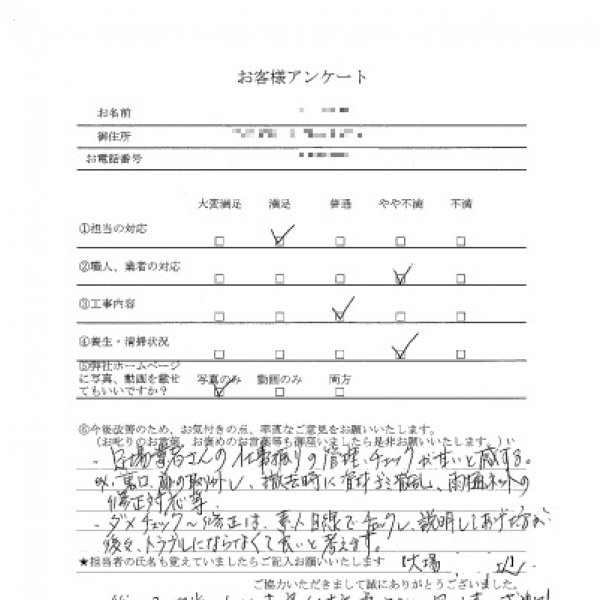 お客様アンケート
お名前
御住所
お電話番号
大変満足 満足 普通 やや不満 不満
①担当の対応
②職人、業者の対応
③工事内容
④養生・清掃状況
⑤弊社ホームページ
に写真、動画を載せ
てもいいですか?
写真のみ 動画のみ 両方
⑥今後改善のため、お気付きの点、率直なご意見をお願いいたします。
(お叱りのお言葉、お褒めのお言葉等も御座いましたら是非お願いいたします。)
・足場業者さんの仕事振りの管理、チェックが甘いと感する。
の取外し、撤去時に 雨樋ネットの
修正対応等
・ダメチェック〜修正は、素人目線でチェックし、説明してあげた方が
後々、トラブルにならなくて良いと考えます。
★担当者の氏名も覚えていましたらご記入お願いいたします 【大場
ご協力いただきまして誠にありがとうございました。